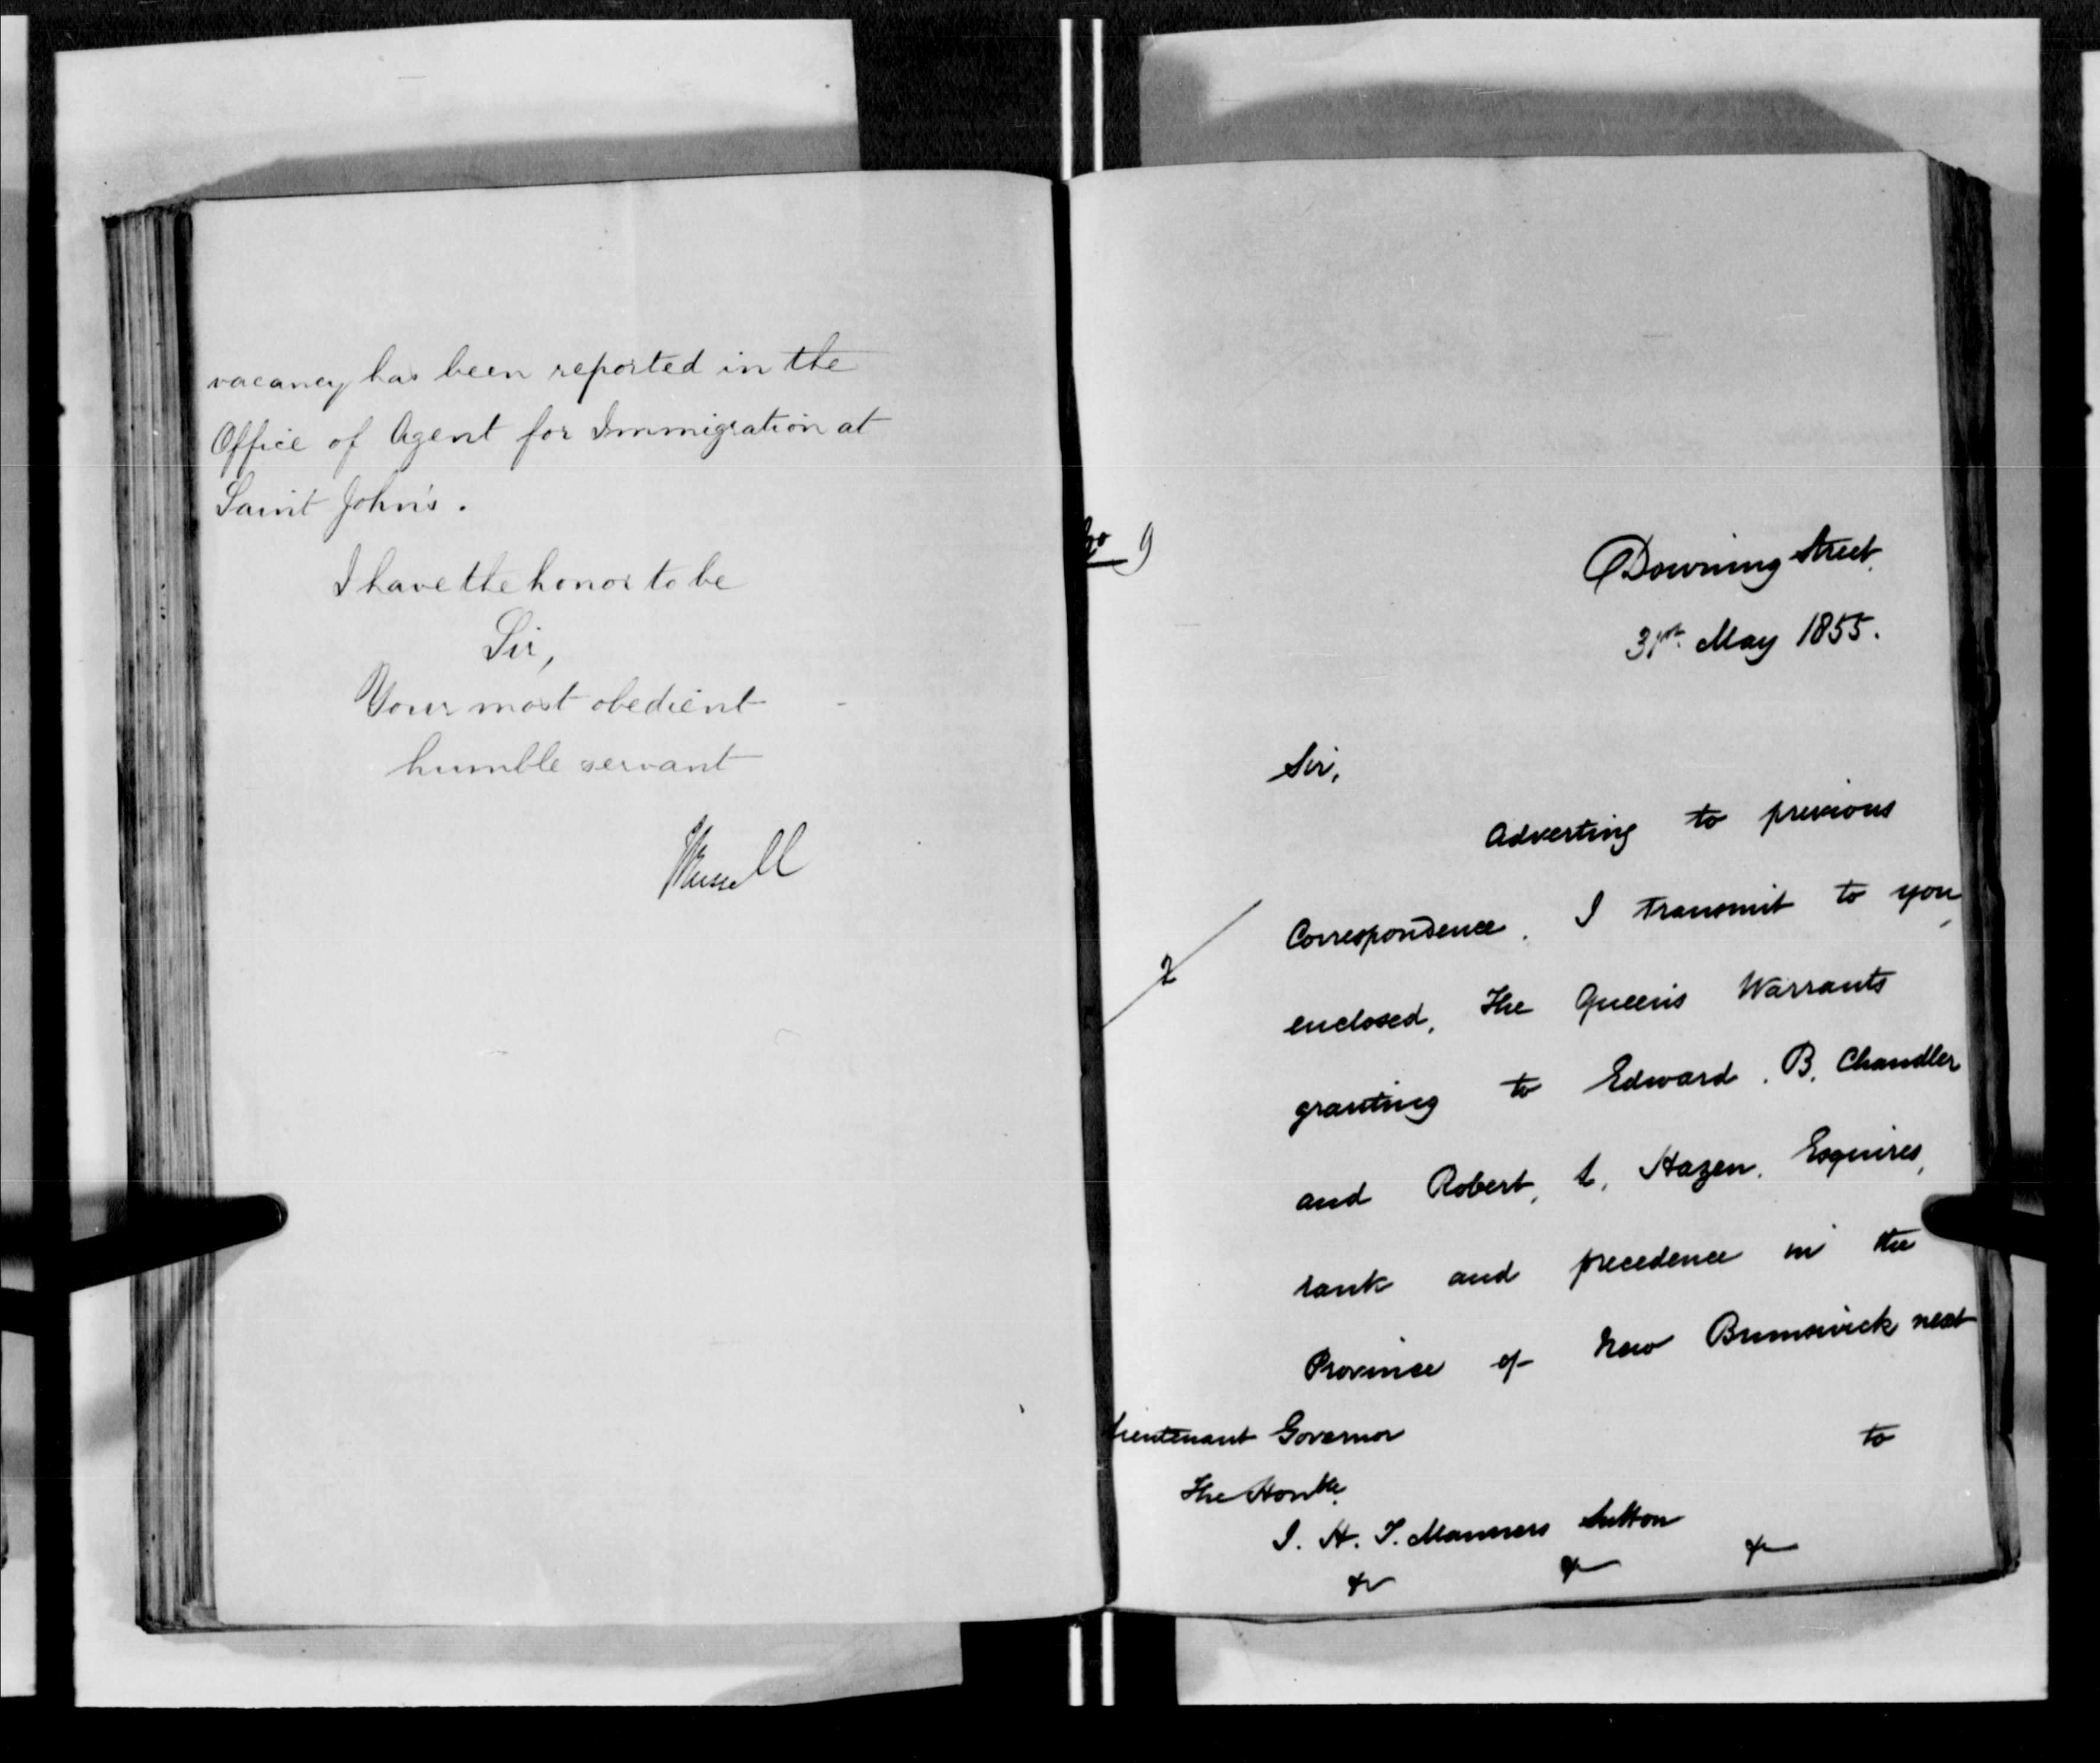 vacancy has been reported in the
Office of Agent for Immigration at
Saint John's.
I have the honor to be
Sir,
Your most obedient
humble servant
JRussell
No 9
Downing Street
31st May 1855.
Sir,
Adverting to previous
2
Correspondence, I transmit to you,
enclosed, The Queen's Warrants
granting to Edward. B. Chandler
and Robert, L, Hazen, Esquires,
rank and precedence in the
Province of New Brunswick next
to
Lieutenant Governor
The Honble
J. H. T. Manners Sutton
&c &c &c